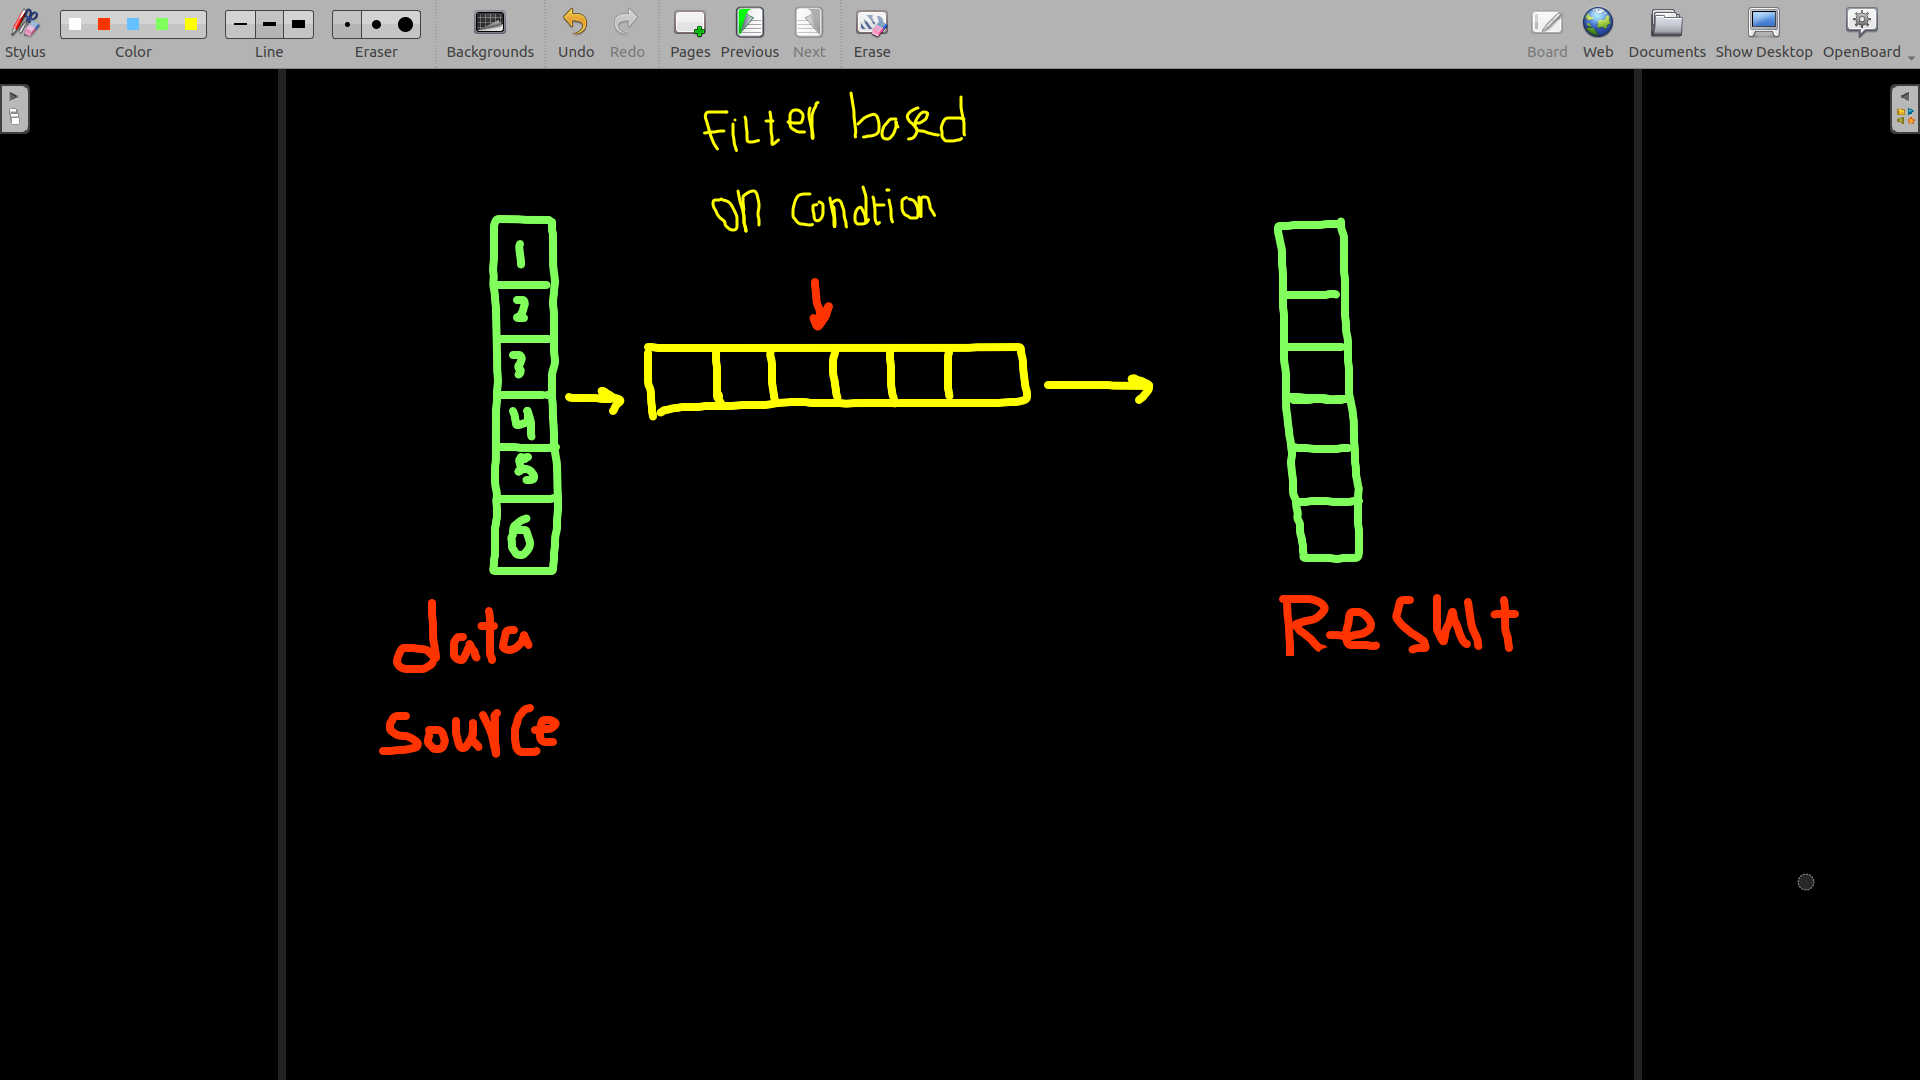 Stylus
Color
Line
Eraser
Backgrounds
Undo
Redo
Pages
Previous
Next
Erase
Board
Web
Documents
Show Desktop
OpenBoard
Filter based
on Condtion
1
2
3
4
5
6
data
source
Result